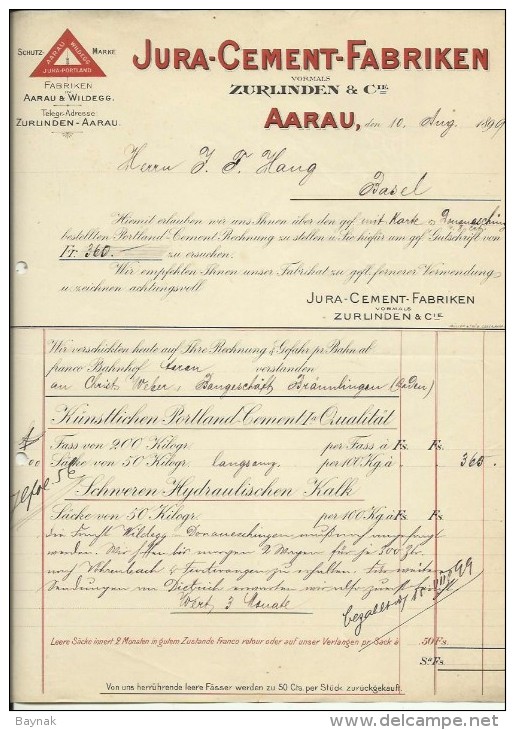 SCHUTZ- MARKE
AARAU WILDEGG
JURA-PORTLAND
FABRIKEN
IN
AARAU & WILDEGG.
Telegr.-Adresse:
ZURLINDEN-AARAU.
JURA-CEMENT-FABRIKEN
VORMALS
ZURLINDEN & CIE.
AARAU, den 10. Aug. 1899
Herrn J. F. Haug
Basel
Hiemit erlauben wir uns Ihnen über den gef. mit Karte Donaueschingen
bestellten Portland-Cement Rechnung zu stellen u. Sie hiefür um gef. Gutschrift von
Fr. 360.- zu ersuchen.
Wir empfehlen Ihnen unser Fabrikat zu gefl. fernerer Verwendung
u. zeichnen achtungsvoll
JURA-CEMENT-FABRIKEN
VORMALS
ZURLINDEN & CIE.
Wir verschickten heute auf Ihre Rechnung & Gefahr pr. Bahn ab
franco Bahnhof verstanden
an Christ. Weber, Baugeschäft Bräunlingen (Baden)
Künstlichen Portland-Cement Ia Qualität
Fass von 200 Kilogr. per Fass à Fs.
Säcke von 50 Kilogr. langsam per 100 Kg. à Fs. 360.-
Schweren Hydraulischen Kalk
Säcke von 50 Kilogr. per 100 Kg. à Fs.
die Fracht Wildegg - Donaueschingen
werden. Wir hoffen bis morgen 2 Wagen für je 200
nach Vöhrenbach & zu erhalten.
Sendungen an Dietrich erwarten wir
Wert 3 Monate
bezahlt 99
Leere Säcke innert 2 Monaten in gutem Zustande Franco retour oder auf unser Verlangen pr. Sack à .50 Fs.
Sa Fs.
Von uns herrührende leere Fässer werden zu 50 Cts. per Stück zurückgekauft.
Baynak
www.delcampe.net